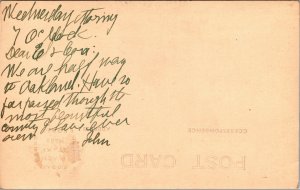 Wednesday Morny
7 O'Clock
Dear E & Eva:
We are half way
to Oakland. Have so
far passed through the
most beautiful
country I have ever
seen
John
POST CARD
CORRESPONDENCE